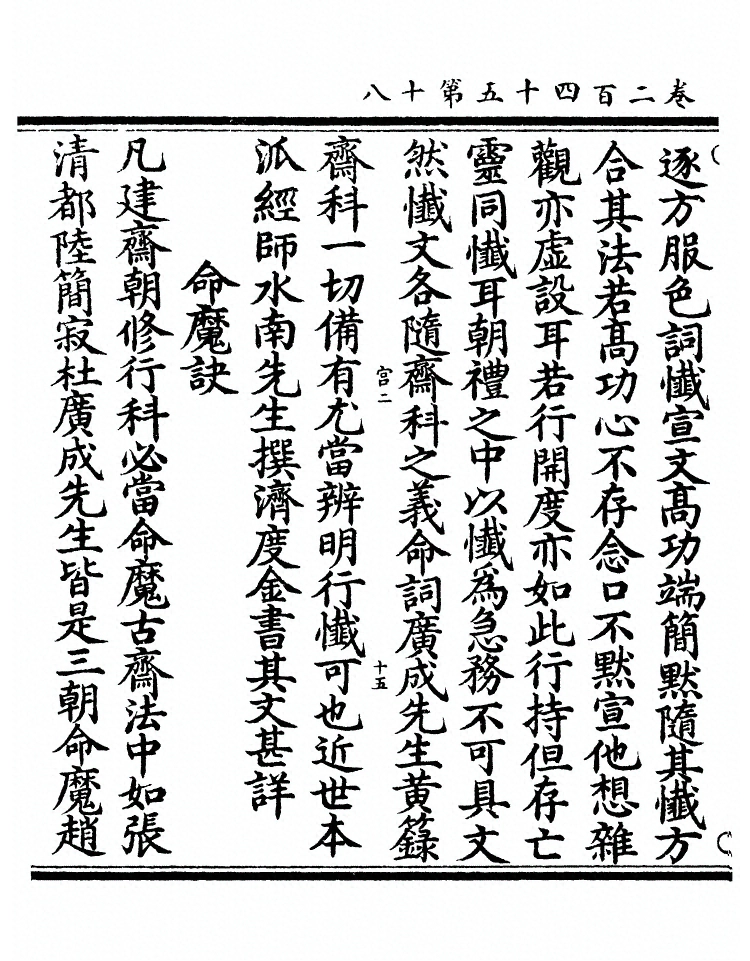 卷二百四十五第十八
逐方服色詞懺宣文高功端簡黙隨其懺方
合其法若高功心不存念口不黙宣他想雜
觀亦虛設耳若行開度亦如此行持但存亡
靈同懺耳朝禮之中以懺爲急務不可具文
然懺文各隨齋科之義命詞廣成先生黄籙
宫二
十五
齋科一切備有尤當辨明行懺可也近世本
派經師水南先生撰濟度金書其文甚詳
命魔訣
凡建齋朝修行科必當命魔古齋法中如張
清都陸簡寂杜廣成先生皆是三朝命魔趙